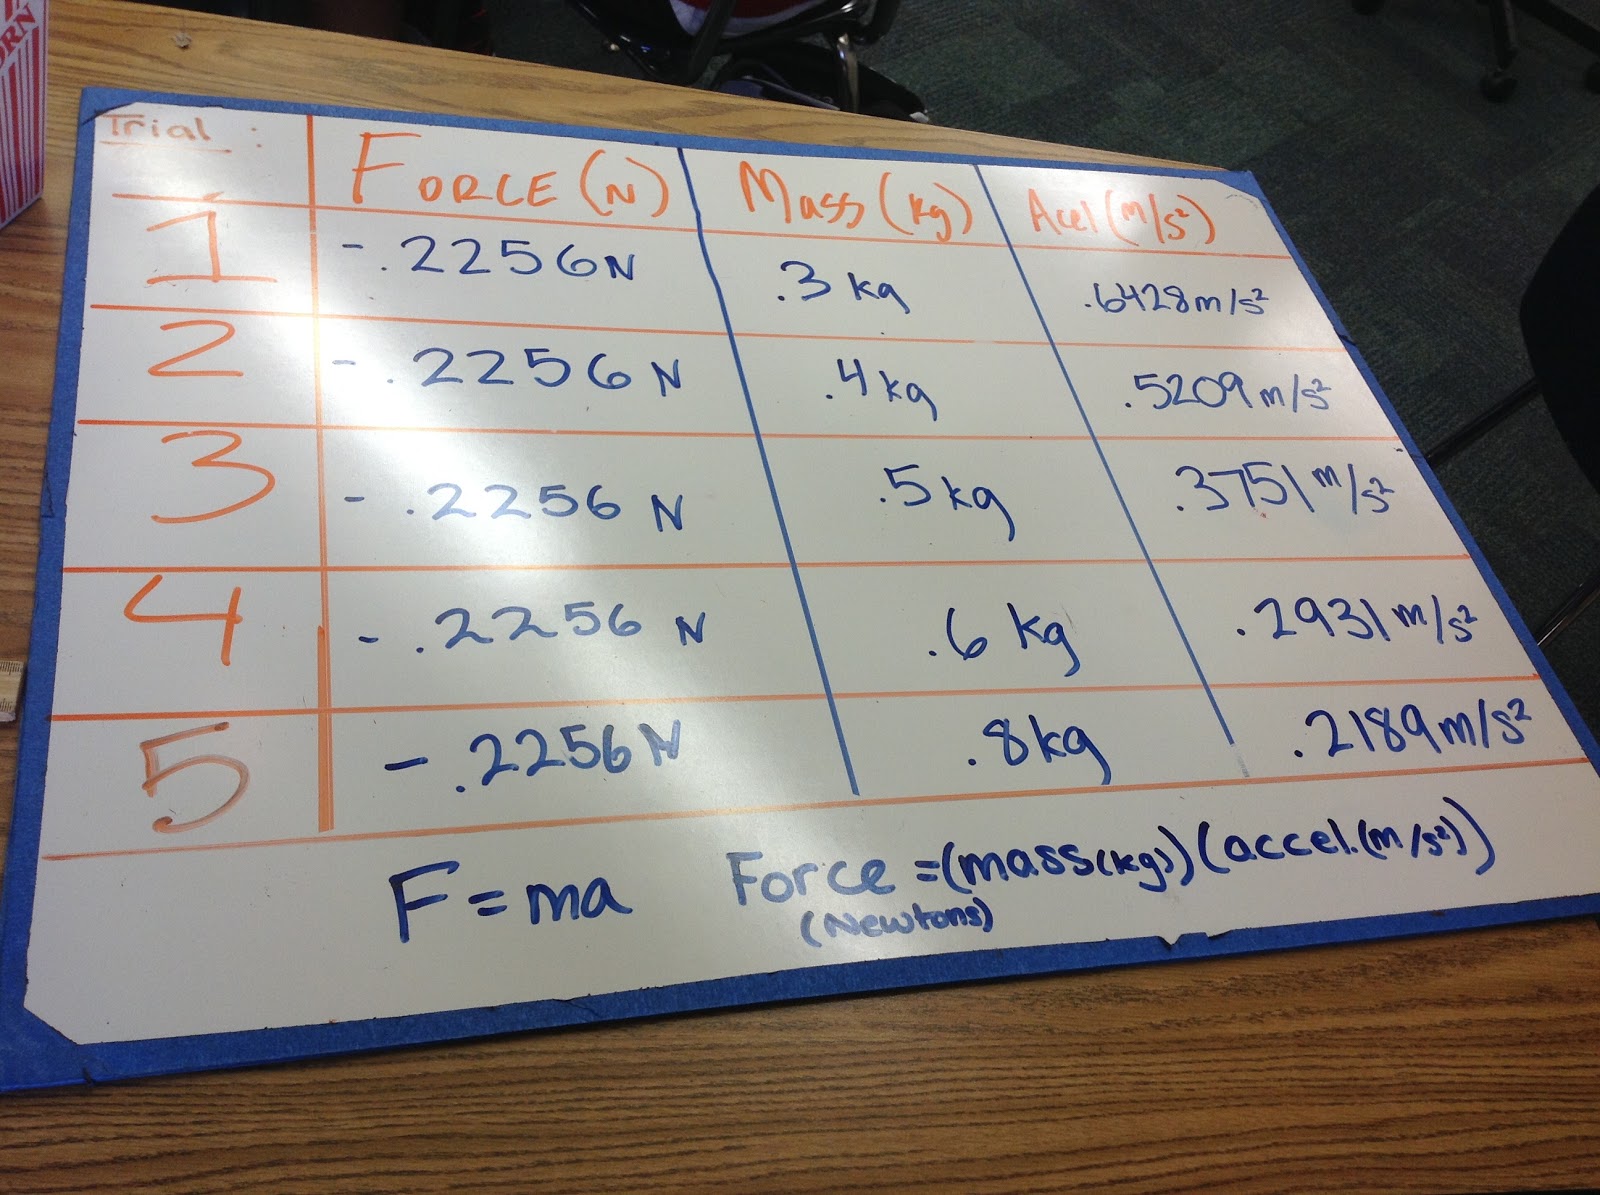 ORN
Trial : FORCE (N) Mass (kg) Acel (m/s²)
1 -.2256N .3 kg .6428m/s²
2 -.2256 N .4 kg .5209m/s²
3 -.2256 N .5 kg .3751 m/s²
4 -.2256 N .6 kg .2931 m/s²
5 -.2256 N .8 kg .2189m/s²
F = ma Force =(mass(kg))(accel.(m/s²))
(Newtons)